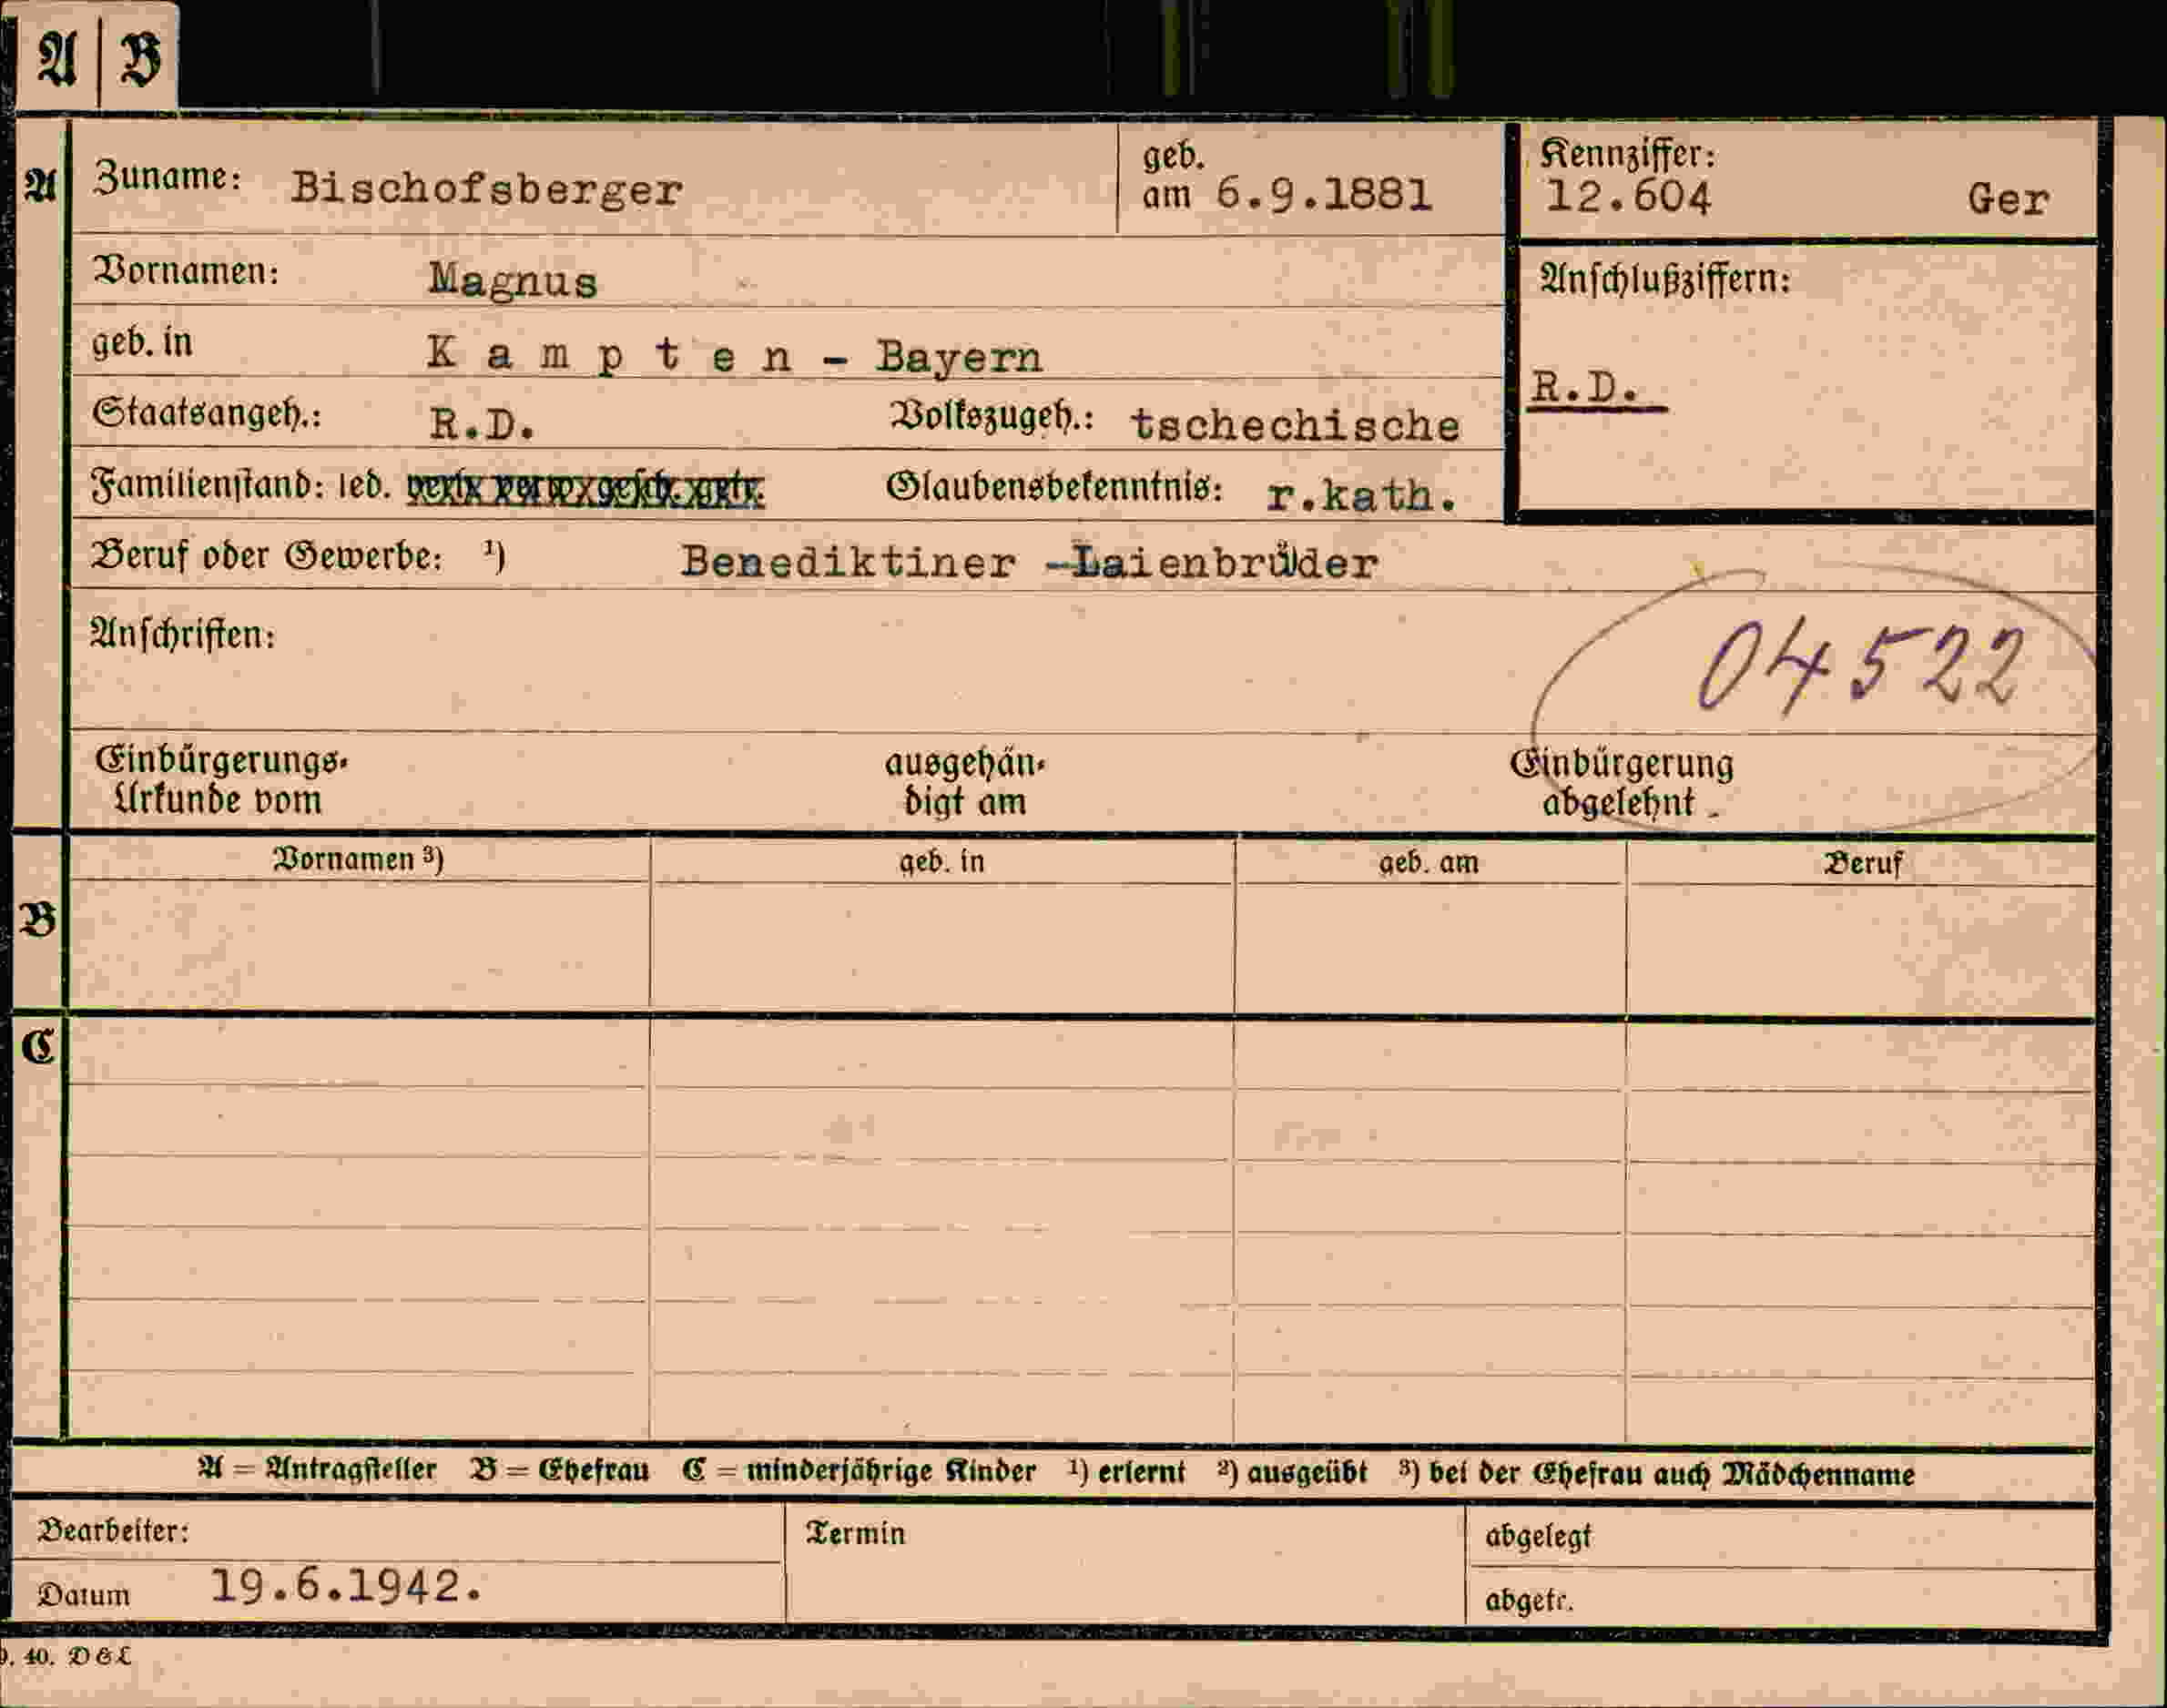 A B
A Zuname: Bischofsberger geb. am 6.9.1881 Kennziffer: 12.604 Ger
Vornamen: Magnus Anschlußziffern:
geb. in K a m p t e n - Bayern
R.D.
Staatsangeh.: R.D. Volkszugeh.: tschechische
Familienstand: led. verh. verw. gesch. getr. Glaubensbekenntnis: r.kath.
Beruf oder Gewerbe: ¹) Benediktiner -Laienbrüder
Anschriften:
04522
Einbürgerungs- ausgehän- Einbürgerung
Urkunde vom digt am abgelehnt
Vornamen ³) geb. in geb. am Beruf
B
C
A = Antragsteller B = Ehefrau C = minderjährige Kinder ¹) erlernt ²) ausgeübt ³) bei der Ehefrau auch Mädchenname
Bearbeiter: Termin abgelegt
Datum 19.6.1942. abgetr.
40. D & L